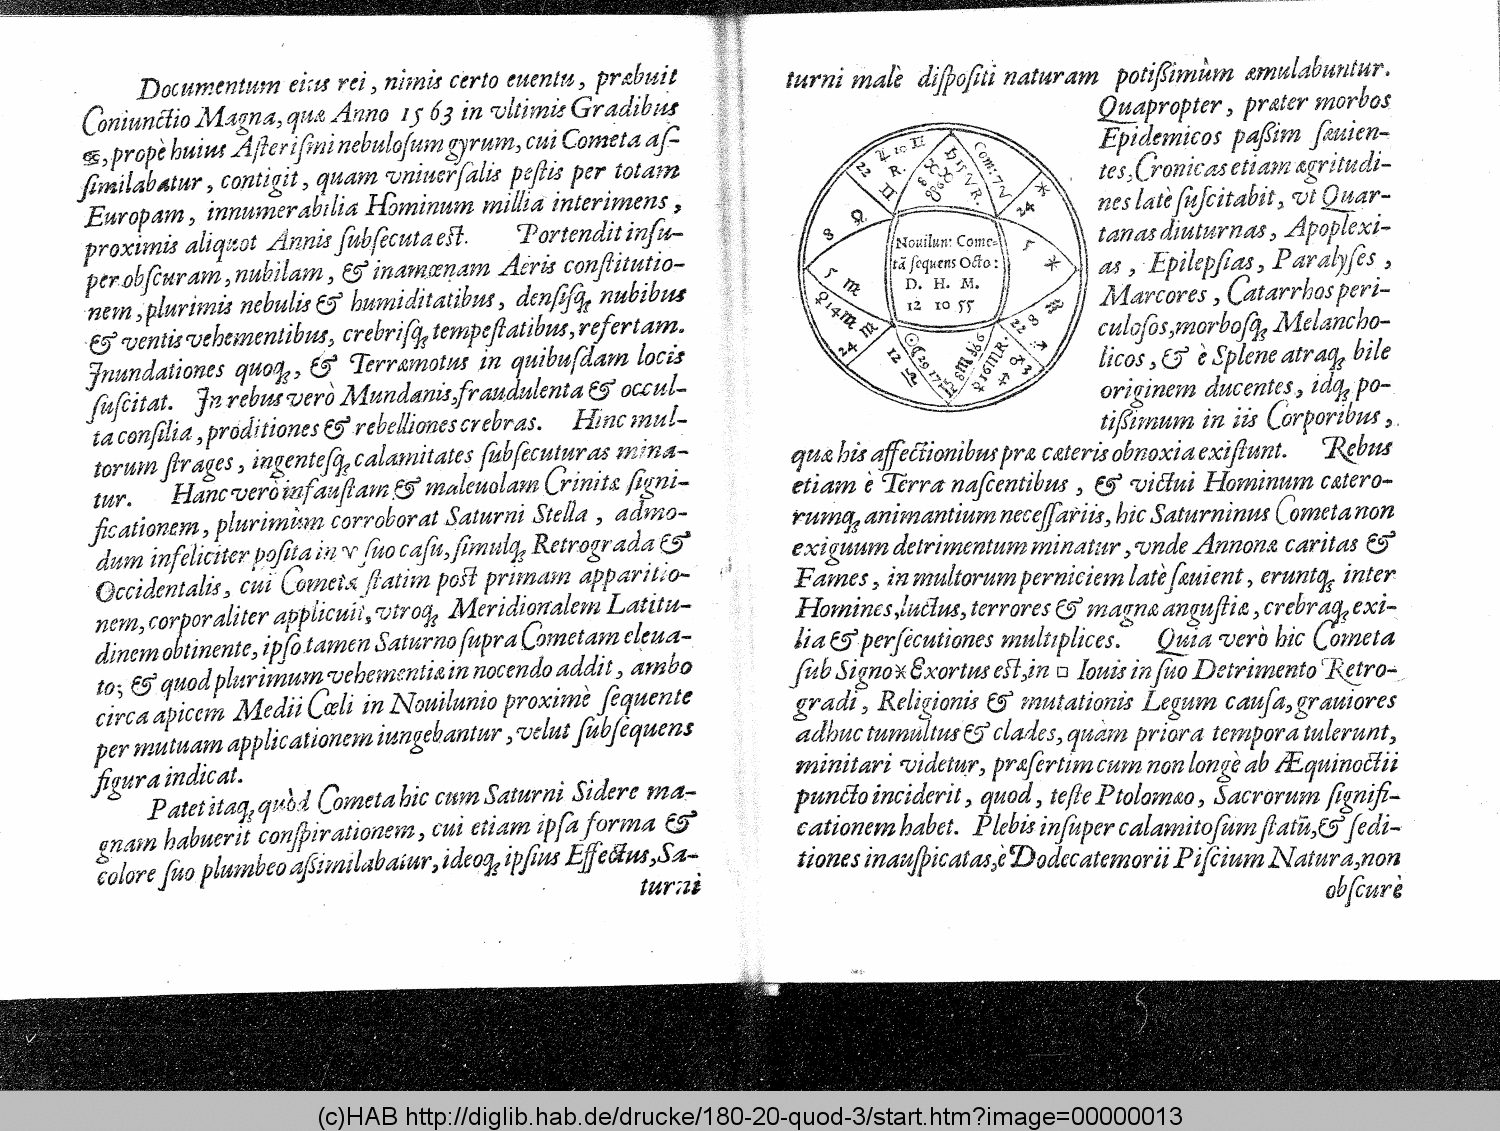 Documentum eius rei, nimis certo euentu, præbuit
Coniunctio Magna, quæ Anno 1563 in vltimis Gradibus
♋, propè huius Aſteriſmi nebuloſum gyrum, cui Cometa aſ-
ſimilabatur, contigit, quam vniuerſalis peſtis per totam
Europam, innumerabilia Hominum millia interimens,
proximis aliquot Annis ſubſecuta eſt. Portendit inſu-
per obſcuram, nubilam, & inamœnam Aëris conſtitutio-
nem, plurimis nebulis & humiditatibus, denſiſq; nubibus
& ventis vehementibus, crebriſq; tempeſtatibus, refertam.
Inundationes quoq;, & Terræmotus in quibuſdam locis
ſuſcitat. In rebus verò Mundanis, fraudulenta & occul-
ta conſilia, proditiones & rebelliones crebras. Hinc mul-
torum ſtrages, ingenteſq; calamitates ſubſecuturas mina-
tur. Hanc verò infauſtam & maleuolam Crinitæ ſigni-
ficationem, plurimùm corroborat Saturni Stella, admo-
dum infeliciter poſita in ♈ ſuo caſu, ſimulq; Retrograda &
Occidentalis, cui Cometa ſtatim poſt primam apparitio-
nem, corporaliter applicuit, vtroq; Meridionalem Latitu-
dinem obtinente, ipſo tamen Saturno ſupra Cometam eleua-
to; & quod plurimum vehementiæ in nocendo addit, ambo
circa apicem Medii Cœli in Nouilunio proximè ſequente
per mutuam applicationem iungebantur, velut ſubſequens
figura indicat.
Patet itaq; quòd Cometa hic cum Saturni Sidere ma-
gnam habuerit conſpirationem, cui etiam ipſa forma &
colore ſuo plumbeo aſſimilabatur, ideoq; ipſius Effectus, Sa-
turni
turni malè diſpoſiti naturam potiſſimùm æmulabuntur.
Quapropter, præter morbos
Epidemicos paſſim ſæuien-
tes, Cronicas etiam ægritudi-
nes latè ſuſcitabit, vt Quar-
tanas diuturnas, Apoplexi-
as, Epilepſias, Paralyſes,
Marcores, Catarrhos peri-
culoſos, morboſq; Melancho-
licos, & è Splene atraq; bile
originem ducentes, idq; po-
tiſſimum in iis Corporibus,
quæ his affectionibus præ cæteris obnoxia exiſtunt. Rebus
etiam è Terra naſcentibus, & victui Hominum cætero-
rumq; animantium neceſſariis, hic Saturninus Cometa non
exiguum detrimentum minatur, vnde Annonæ caritas &
Fames, in multorum perniciem latè ſæuient, eruntq; inter
Homines, luctus, terrores & magnæ anguſtiæ, crebraq; exi-
lia & perſecutiones multiplices. Quia verò hic Cometa
ſub Signo ♓ Exortus eſt, in □ Iouis in ſuo Detrimento Retro-
gradi, Religionis & mutationis Legum cauſa, grauiores
adhuc tumultus & clades, quàm priora tempora tulerunt,
minitari videtur, præſertim cum non longè ab Æquinoctii
puncto inciderit, quod, teſte Ptolomæo, Sacrorum ſignifi-
cationem habet. Plebis inſuper calamitoſum ſtatũ, & ſedi-
tiones inauſpicatas, è Dodecatemorii Piſcium Natura, non
obſcurè
Nouilun: Come-
tã ſequens Octo:
D. H. M.
12 10 55
(c)HAB http://diglib.hab.de/drucke/180-20-quod-3/start.htm?image=00000013